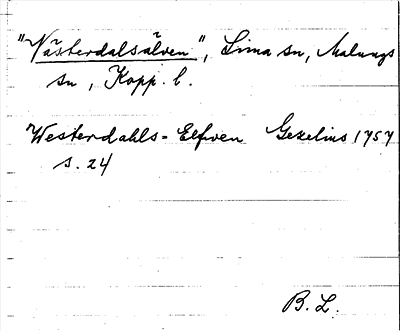 "Västerdalsälven", Lima sn, Malungs
sn, Kopp. l.
Westerdahls-Elfven Gezelius 1757
s. 24
B. L.